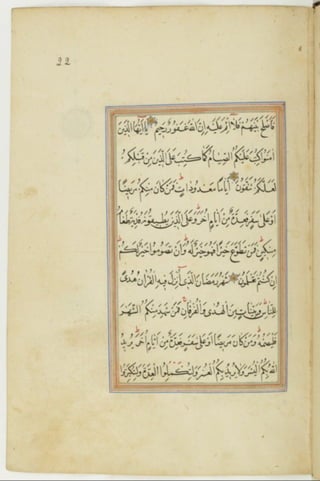 22
فَأَصْلَحَ بَيْنَهُمْ فَلَا إِثْمَ عَلَيْهِ إِنَّ اللهَ غَفُورٌ رَحِيمٌ يَا أَيُّهَا الَّذِينَ
اٰمَنُوا كُتِبَ عَلَيْكُمُ الصِّيَامُ كَمَا كُتِبَ عَلَى الَّذِينَ مِنْ قَبْلِكُمْ
لَعَلَّكُمْ تَتَّقُونَ أَيَّامًا مَعْدُودَاتٍ فَمَنْ كَانَ مِنْكُمْ مَرِيضًا
أَوْ عَلَى سَفَرٍ فَعِدَّةٌ مِنْ أَيَّامٍ أُخَرَ وَعَلَى الَّذِينَ يُطِيقُونَهُ فِدْيَةٌ طَعَامُ
مِسْكِينٍ فَمَنْ تَطَوَّعَ خَيْرًا فَهُوَ خَيْرٌ لَهُ وَأَنْ تَصُومُوا خَيْرٌ لَكُمْ
إِنْ كُنْتُمْ تَعْلَمُونَ شَهْرُ رَمَضَانَ الَّذِي أُنْزِلَ فِيهِ الْقُرْاٰنُ هُدًى
لِلنَّاسِ وَبَيِّنَاتٍ مِنَ الْهُدَى وَالْفُرْقَانِ فَمَنْ شَهِدَ مِنْكُمُ الشَّهْرَ
فَلْيَصُمْهُ وَمَنْ كَانَ مَرِيضًا أَوْ عَلَى سَفَرٍ فَعِدَّةٌ مِنْ أَيَّامٍ أُخَرَ يُرِيدُ
اللهُ بِكُمُ الْيُسْرَ وَلَا يُرِيدُ بِكُمُ الْعُسْرَ وَلِتُكْمِلُوا الْعِدَّةَ وَلِتُكَبِّرُوا